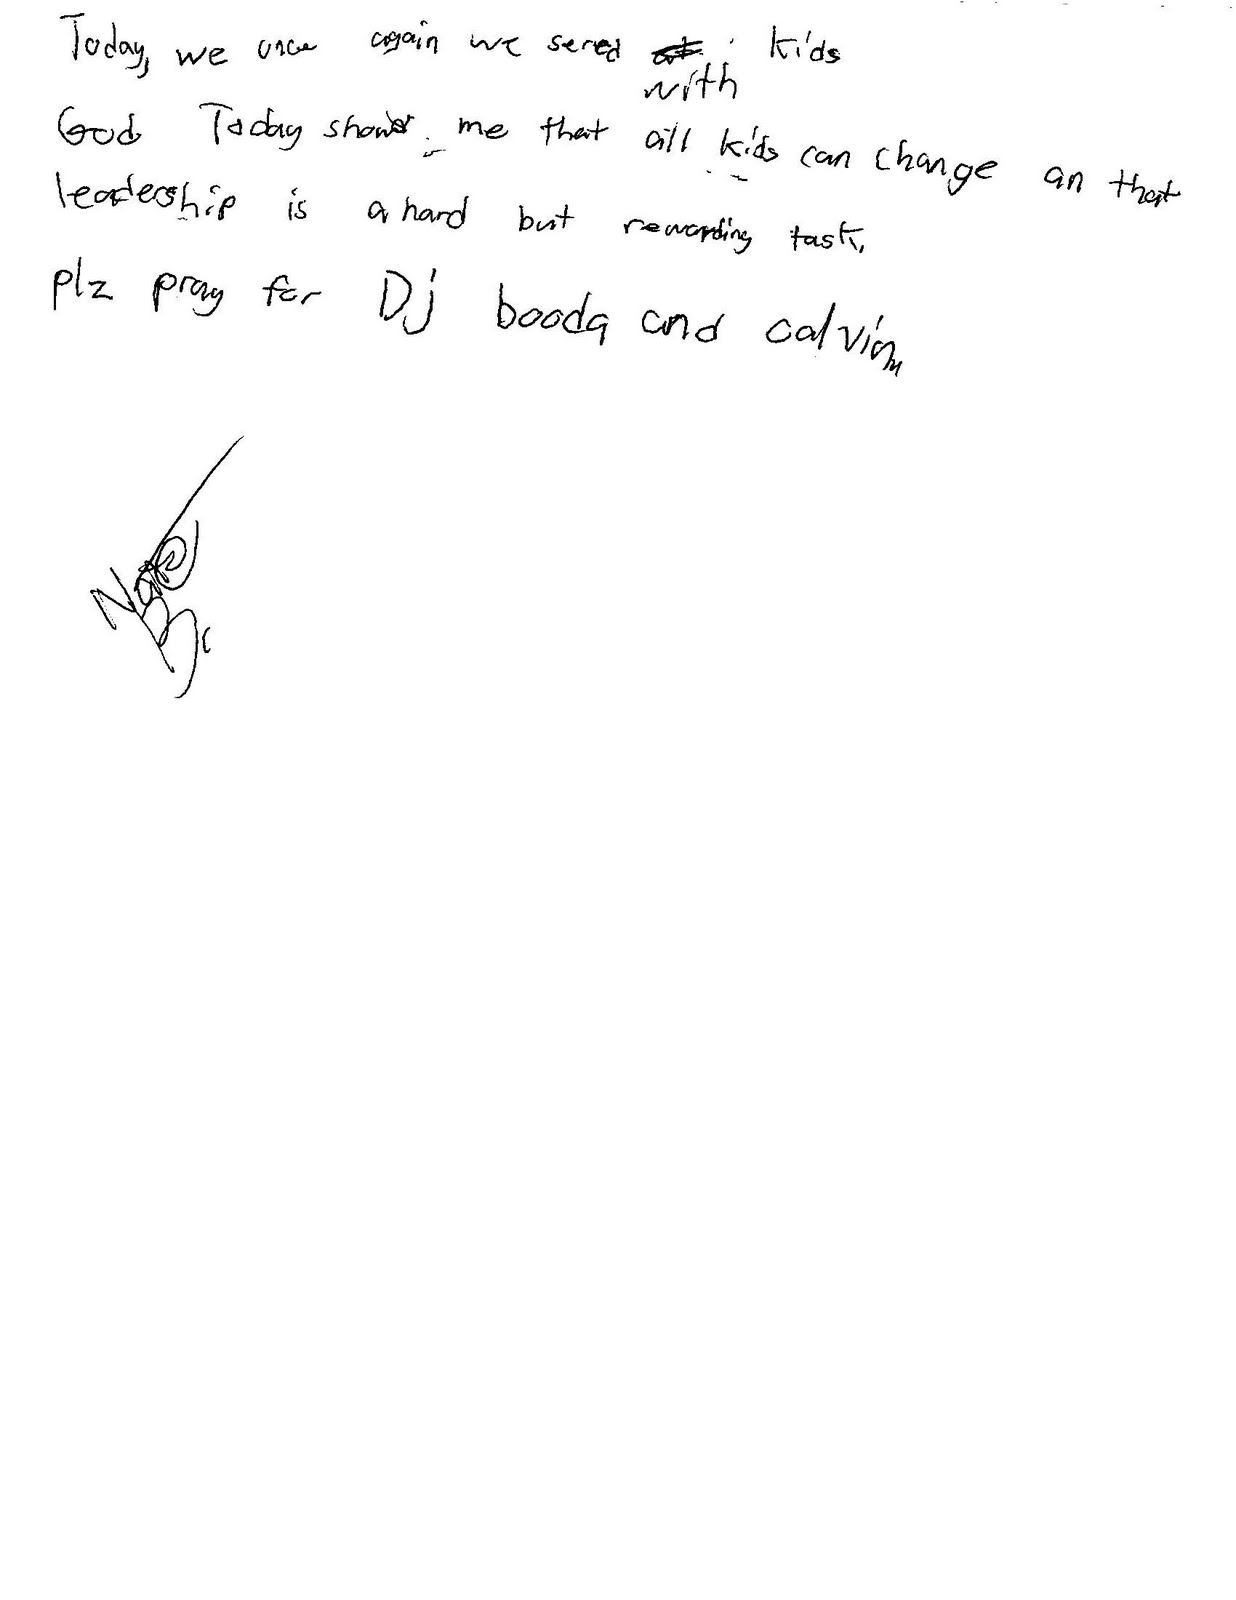 Today, we once again we sered with kids
God Today shower me that all kids can change an that
leadership is a hard but rewarding task.
plz pray for Dj booda and calvin
Nate